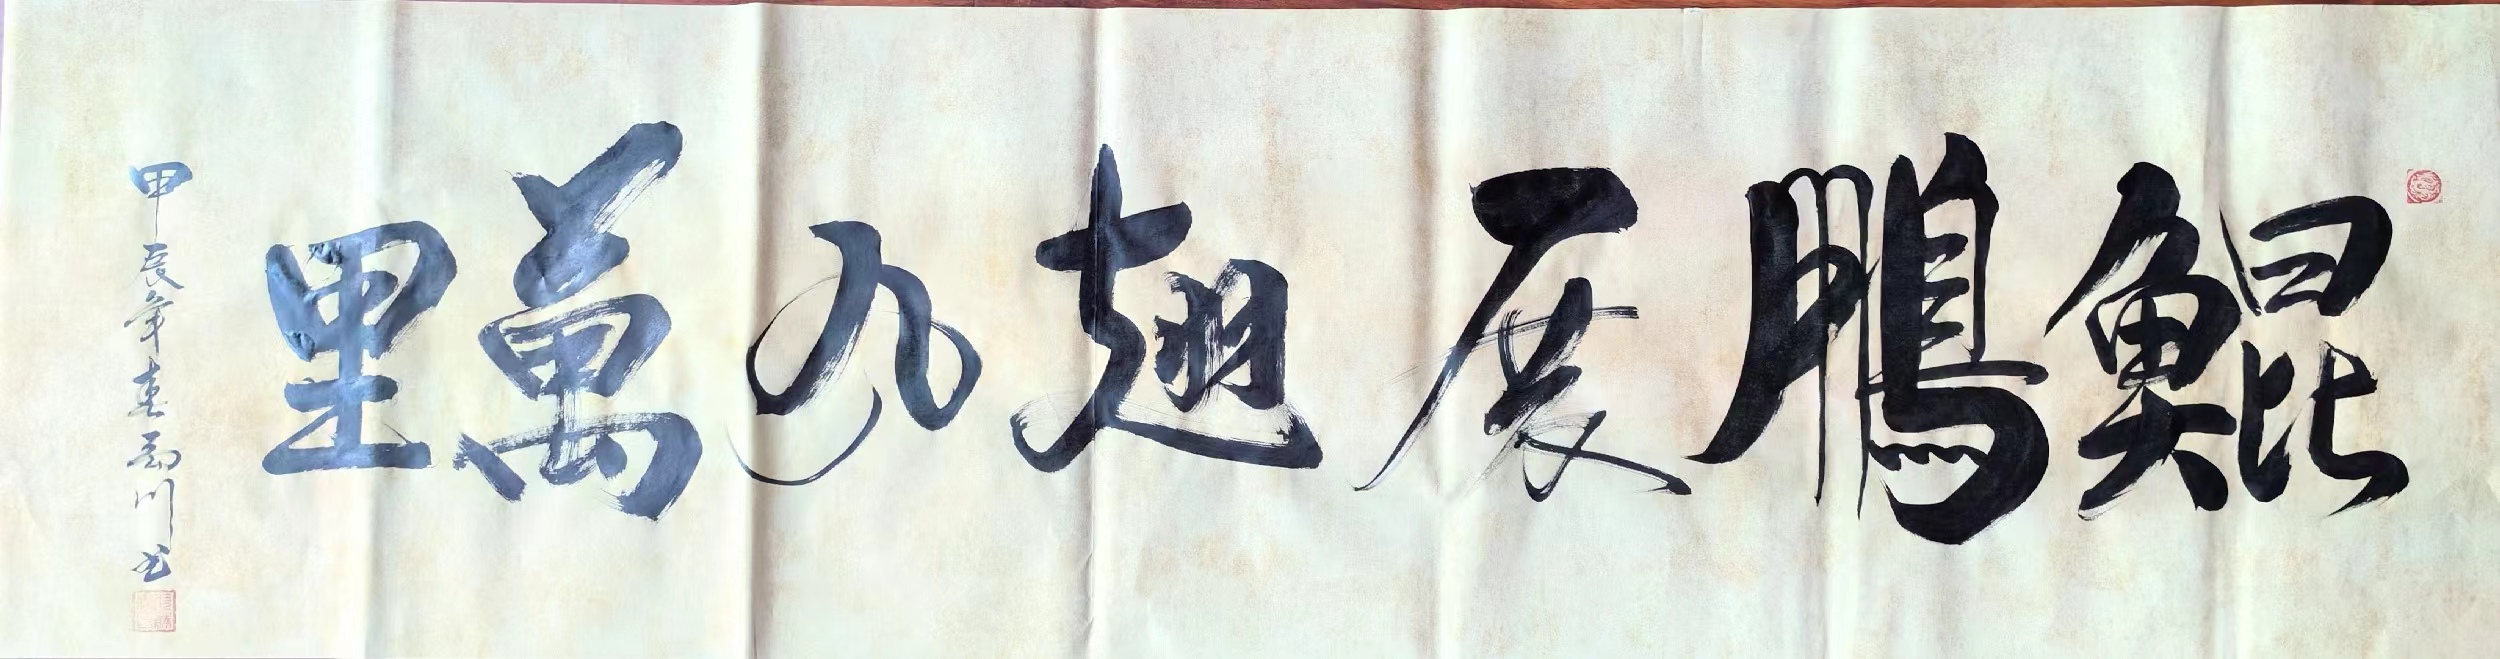 鯤鵬展翅九萬里
甲辰年春 川书